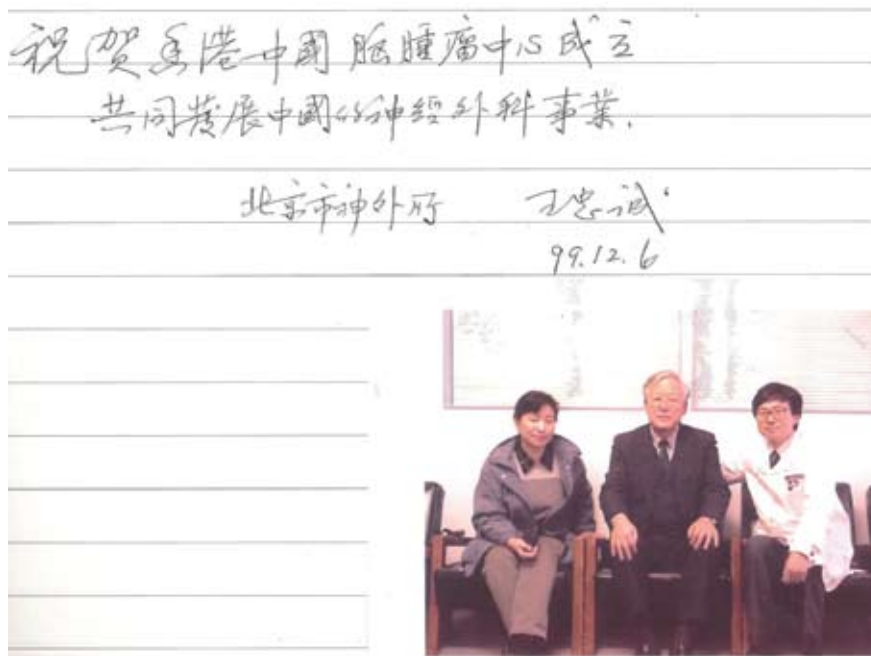 祝贺香港中國脑腫瘤中心成立
共同发展中國的神经外科事業.
北京市神外所 王忠诚
99.12.6